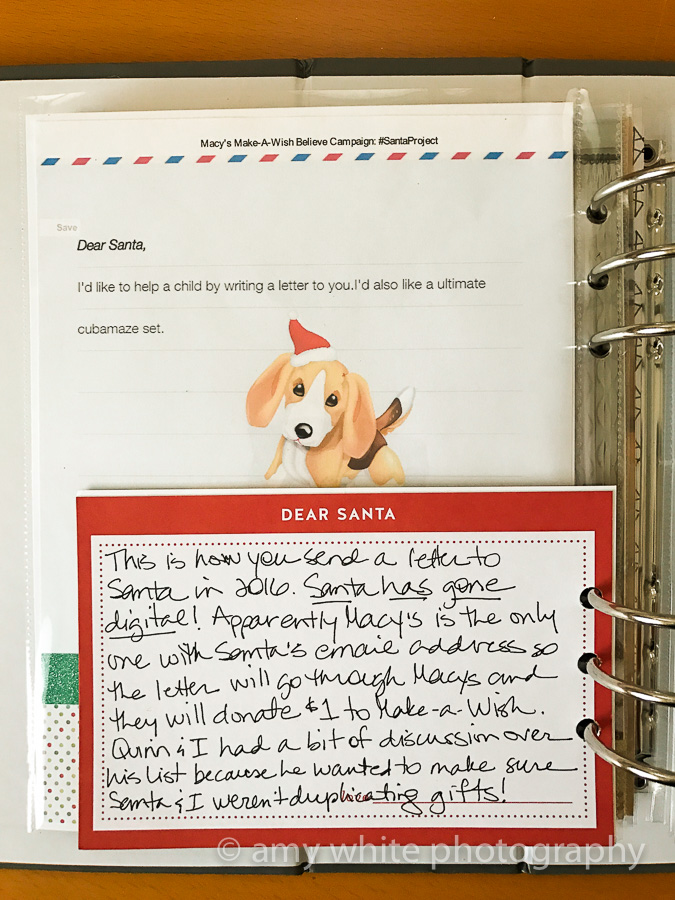 Macy's Make-A-Wish Believe Campaign: #SantaProject
Save
Dear Santa,
I'd like to help a child by writing a letter to you.I'd also like a ultimate
cubamaze set.
DEAR SANTA
This is how you send a letter to
Santa in 2016. Santa has gone
digital! Apparently Macy's is the only
one with Santa's email address so
the letter will go through Macys and
they will donate $1 to Make-a-Wish.
Quinn & I had a bit of discussion over
his list because he wanted to make sure
Santa & I weren't duplicating gifts!
© amy white photography